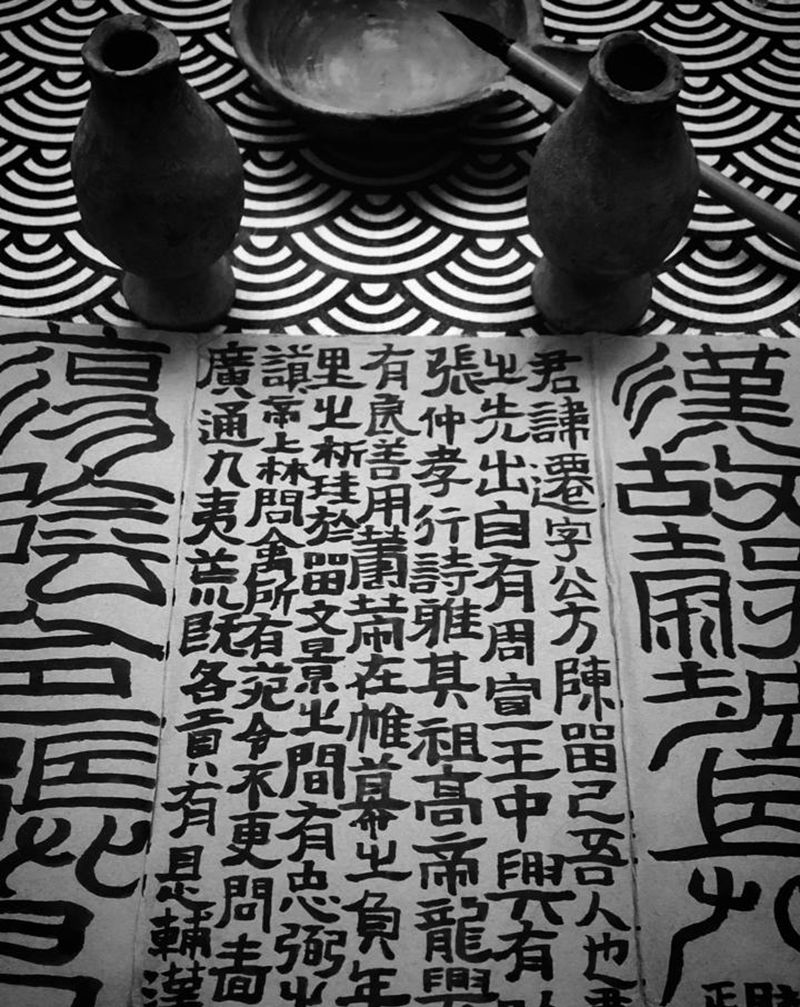 漢故
君諱遷字公方陳留己吾人也
之先出自有周宣王中興有
張仲孝行詩雅其祖高帝龍興
有良善用在帷幕之負
里之析珪於留文景之間有忠弼之
謨帝上林問禽所有苑令不更問嗇
廣通九夷荒既各貢有是輔漢
蕩陰令張君